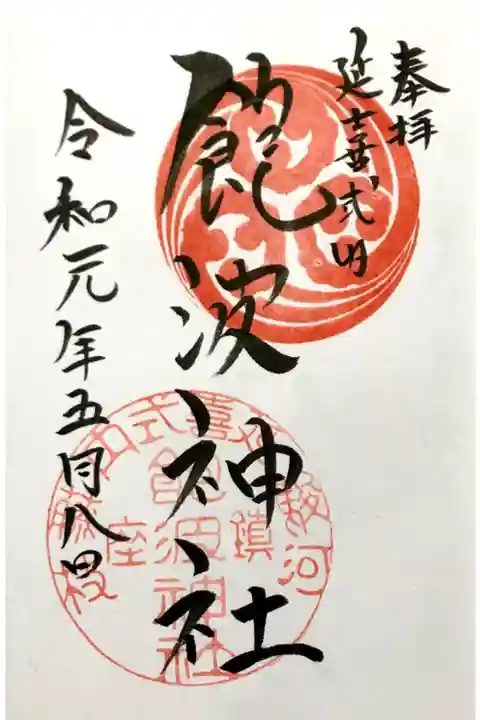 奉拝
延喜式内
飽波神社
令和元年五月八日
駿河
延喜式内
鎮座
飽波神社
藤枝